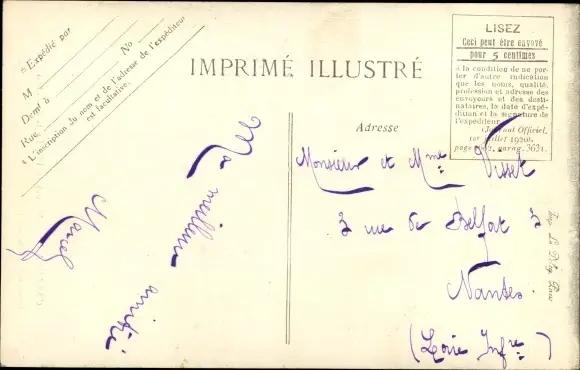 « Expédié par
M
Demt à
Rue                Nº
« L'inscription du nom et de l'adresse de l'expéditeur
est facultative.
IMPRIMÉ ILLUSTRÉ
LISEZ
Ceci peut être envoyé
pour 5 centimes
à la condition de ne por-
ter d'autre indication
que les noms, qualité,
profession et adresse des
envoyeurs et des desti-
nataires, la date d'expé-
dition et la signature de
l'expéditeur.
(Journal Officiel,
1er juillet 1920,
page parag. 3631.
Adresse
Ma meilleure
amitié
Marcel
Monsieur et Mme Visset
2 rue de Belfort 2
Nantes.
(Loire Infre)
Imp. Le